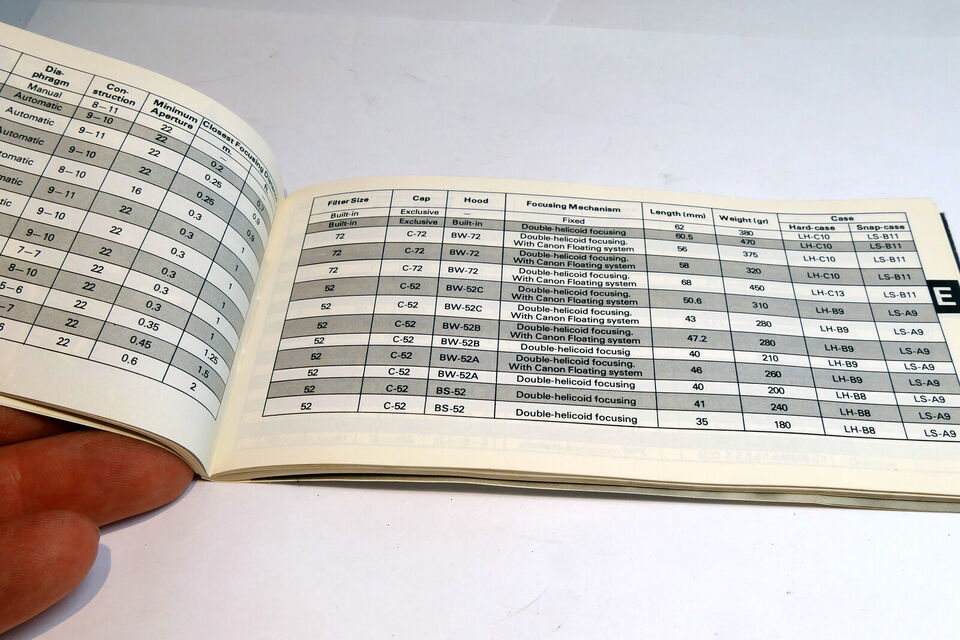 Dia-
phragm
Con-
struction
Minimum
Aperture
Closest Focusing
m
Manual
8–11
22
0.2
Automatic
9–10
22
0.25
Automatic
9–11
22
0.25
Automatic
9–10
22
0.3
8–10
16
0.3
9–11
22
0.3
1
9–10
22
0.3
1
9–10
22
0.3
1
7–7
22
0.3
1
8–10
22
0.35
1.25
22
0.45
1.5
22
0.6
2
Filter Size Cap Hood Focusing Mechanism Length (mm) Weight (gr) Case
Hard-case Snap-case
Built-in Exclusive — Fixed 62 380 LH-C10 LS-B11
Built-in Exclusive Built-in Double-helicoid focusing 60.5 470 LH-C10 LS-B11
72 C-72 BW-72 Double-helicoid focusing.
With Canon Floating system 56 375 LH-C10 LS-B11
72 C-72 BW-72 Double-helicoid focusing.
With Canon Floating system 58 320 LH-C10 LS-B11
72 C-72 BW-72 Double-helicoid focusing.
With Canon Floating system 68 450 LH-C13 LS-B11
52 C-52 BW-52C Double-helicoid focusing.
With Canon Floating system 50.6 310 LH-B9 LS-A9
52 C-52 BW-52C Double-helicoid focusing.
With Canon Floating system 43 280 LH-B9 LS-A9
52 C-52 BW-52B Double-helicoid focusing.
With Canon Floating system 47.2 280 LH-B9 LS-A9
52 C-52 BW-52B Double-helicoid focusig 40 210 LH-B9 LS-A9
52 C-52 BW-52A Double-helicoid focusing.
With Canon Floating system 46 260 LH-B9 LS-A9
52 C-52 BW-52A Double-helicoid focusing 40 200 LH-B8 LS-A9
52 C-52 BS-52 Double-helicoid focusing 41 240 LH-B8 LS-A9
52 C-52 BS-52 Double-helicoid focusing 35 180 LH-B8 LS-A9
E